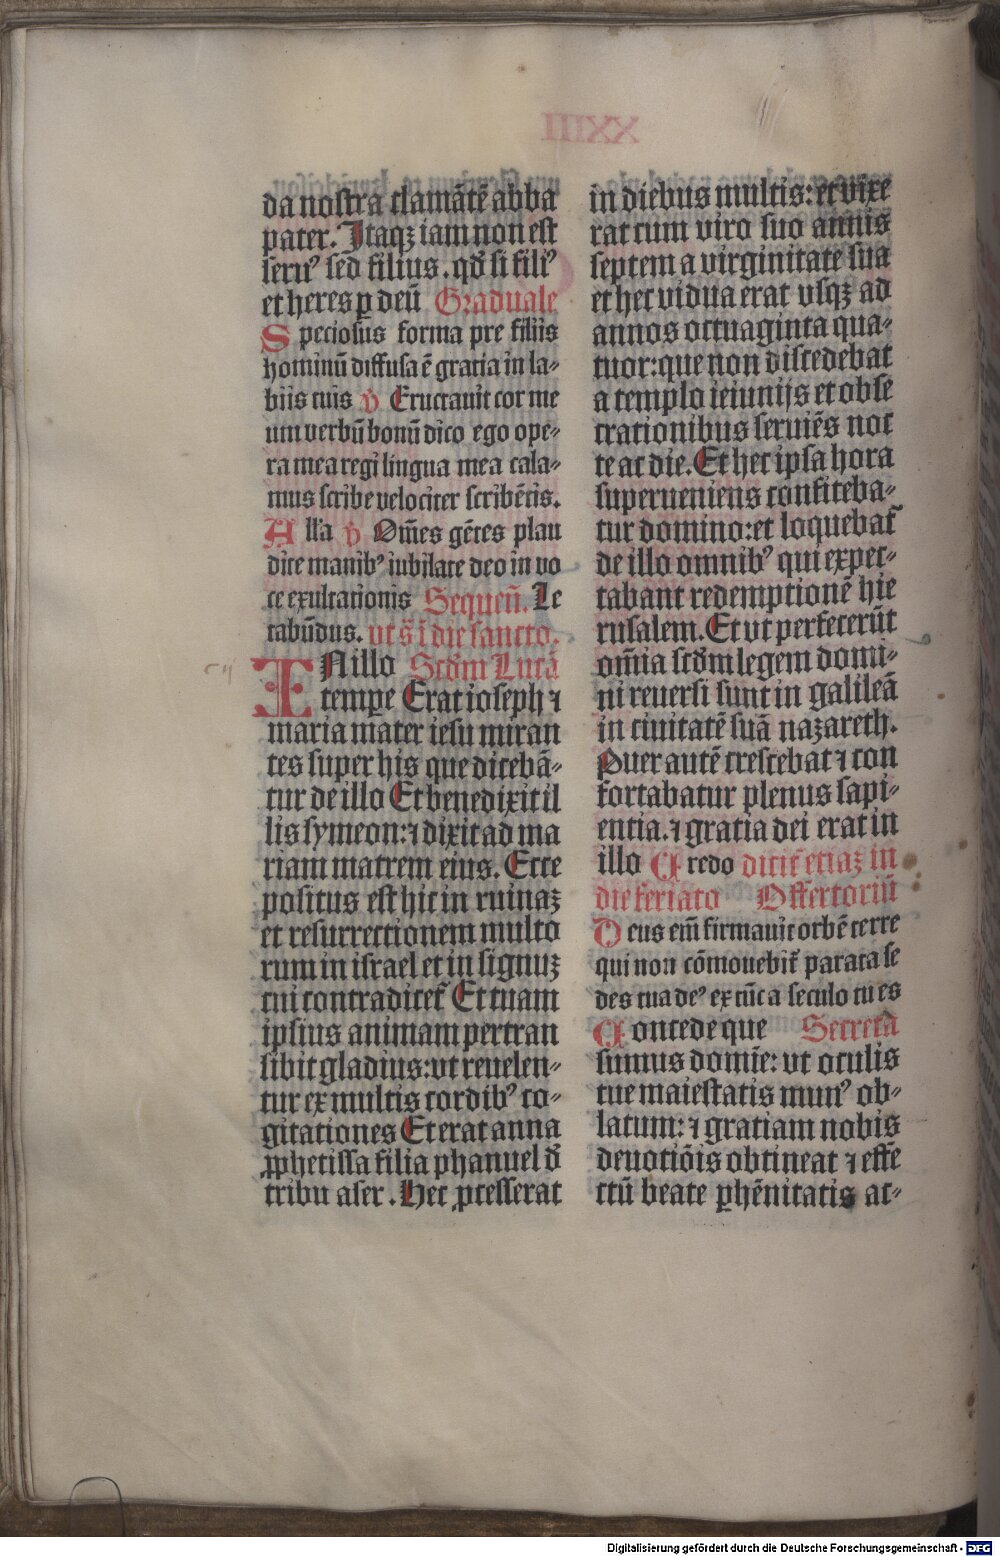 da nostra clamātē abba
pater. Itaqȝ iam non est
seru⁹ sed filius. qđ si fili⁹
et heres ꝑ deū Graduale
Speciosus forma pre filiis
hominū diffusa ē gratia in la-
biis tuis ℣ Eructauit cor me
um uerbū bonū dico ego ope-
ra mea regi lingua mea cala-
mus scribe uelociter scribētis.
All'a ℣ Om̄es gētes plau
dite manib⁹ iubilate deo in uo
ce exultationis Sequeñ. Le
tabūdus. ut s̄ ī die sancto.
IN illo Scd̄m Lucā
tempe Erat ioseph ⁊
maria mater iesu miran
tes super his que dicebā-
tur de illo Et benedixit il
lis symeon: ⁊ dixit ad ma
riam matrem eius. Ecce
positus est hic in ruinaȝ
et resurrectionem multo
rum in israel et in signuȝ
cui contradicet᷑ Et tuam
ipsius animam pertran
sibit gladius: ut reuelen-
tur ex multis cordib⁹ co-
gitationes Et erat anna
ꝓphetissa filia phanuel đ
tribu aser. Hec ꝓcesserat
in diebus multis: et vixe
rat cum viro suo annis
septem a virginitate sua
et hec vidua erat vsqȝ ad
annos octuaginta qua-
tuor: que non discedebat
a templo ieiunijs et obse
crationibus seruiēs noc
te ac die. Et hec ipsa hora
superueniens confiteba-
tur domino: et loquebat᷑
de illo omnib⁹ qui expec-
tabant redemptionē hie
rusalem. Et vt perfecerūt
om̄ia scd̄m legem domi-
ni reuersi sunt in galileā
in ciuitatē suā nazareth.
Puer autē crescebat ⁊ con
fortabatur plenus sapi-
entia. ⁊ gratia dei erat in
illo Credo dicit᷑ etiaȝ in
die feriato Offertoriū
Deus em̄ firmauit orbē terre
qui non cōmouebit᷑ parata se
des tua de⁹ ex tūc a seculo tu es
Concede que Secreta
sumus domīe: vt oculis
tue maiestatis mun⁹ ob-
latum: ⁊ gratiam nobis
deuotiōis obtineat ⁊ effē
ctū beate ꝑhēnitatis ac-
Digitalisierung gefördert durch die Deutsche Forschungsgemeinschaft - DFG